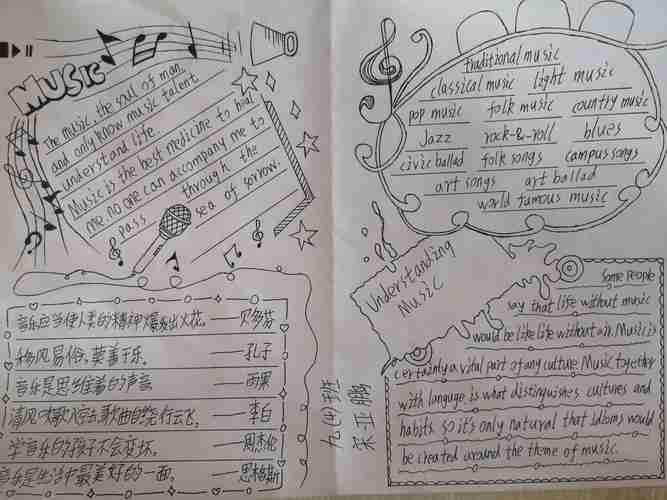 MUSIC
The music the soul of man
and only know music talent
understand life.
Music is the best medicine to heal
me no one can accompany me to
pass through the
sea of sorrow.
音乐应当使人类的精神爆发出火花。——贝多芬
移风易俗,莫善于乐。——孔子
音乐是思维着的声音——雨果
清风咏歌入空去,歌曲自绕行云飞。——李白
学音乐的孩子不会变坏。——周杰伦
音乐是生活中最美好的一面。——恩格斯
traditional music
classical music light music
pop music folk music country music
Jazz rock-&-roll blues
civic ballad folk songs campus songs
art songs art ballad
world famous music
Understanding
Music
Some People
say that life without music
would be like life without air. Music is
certainly a vital part of any culture. Music, together
with languge is what distinguishes cultures and
habits so it's only natural that idioms would
be created around the theme of music.
九(4)班
宋亚鹏